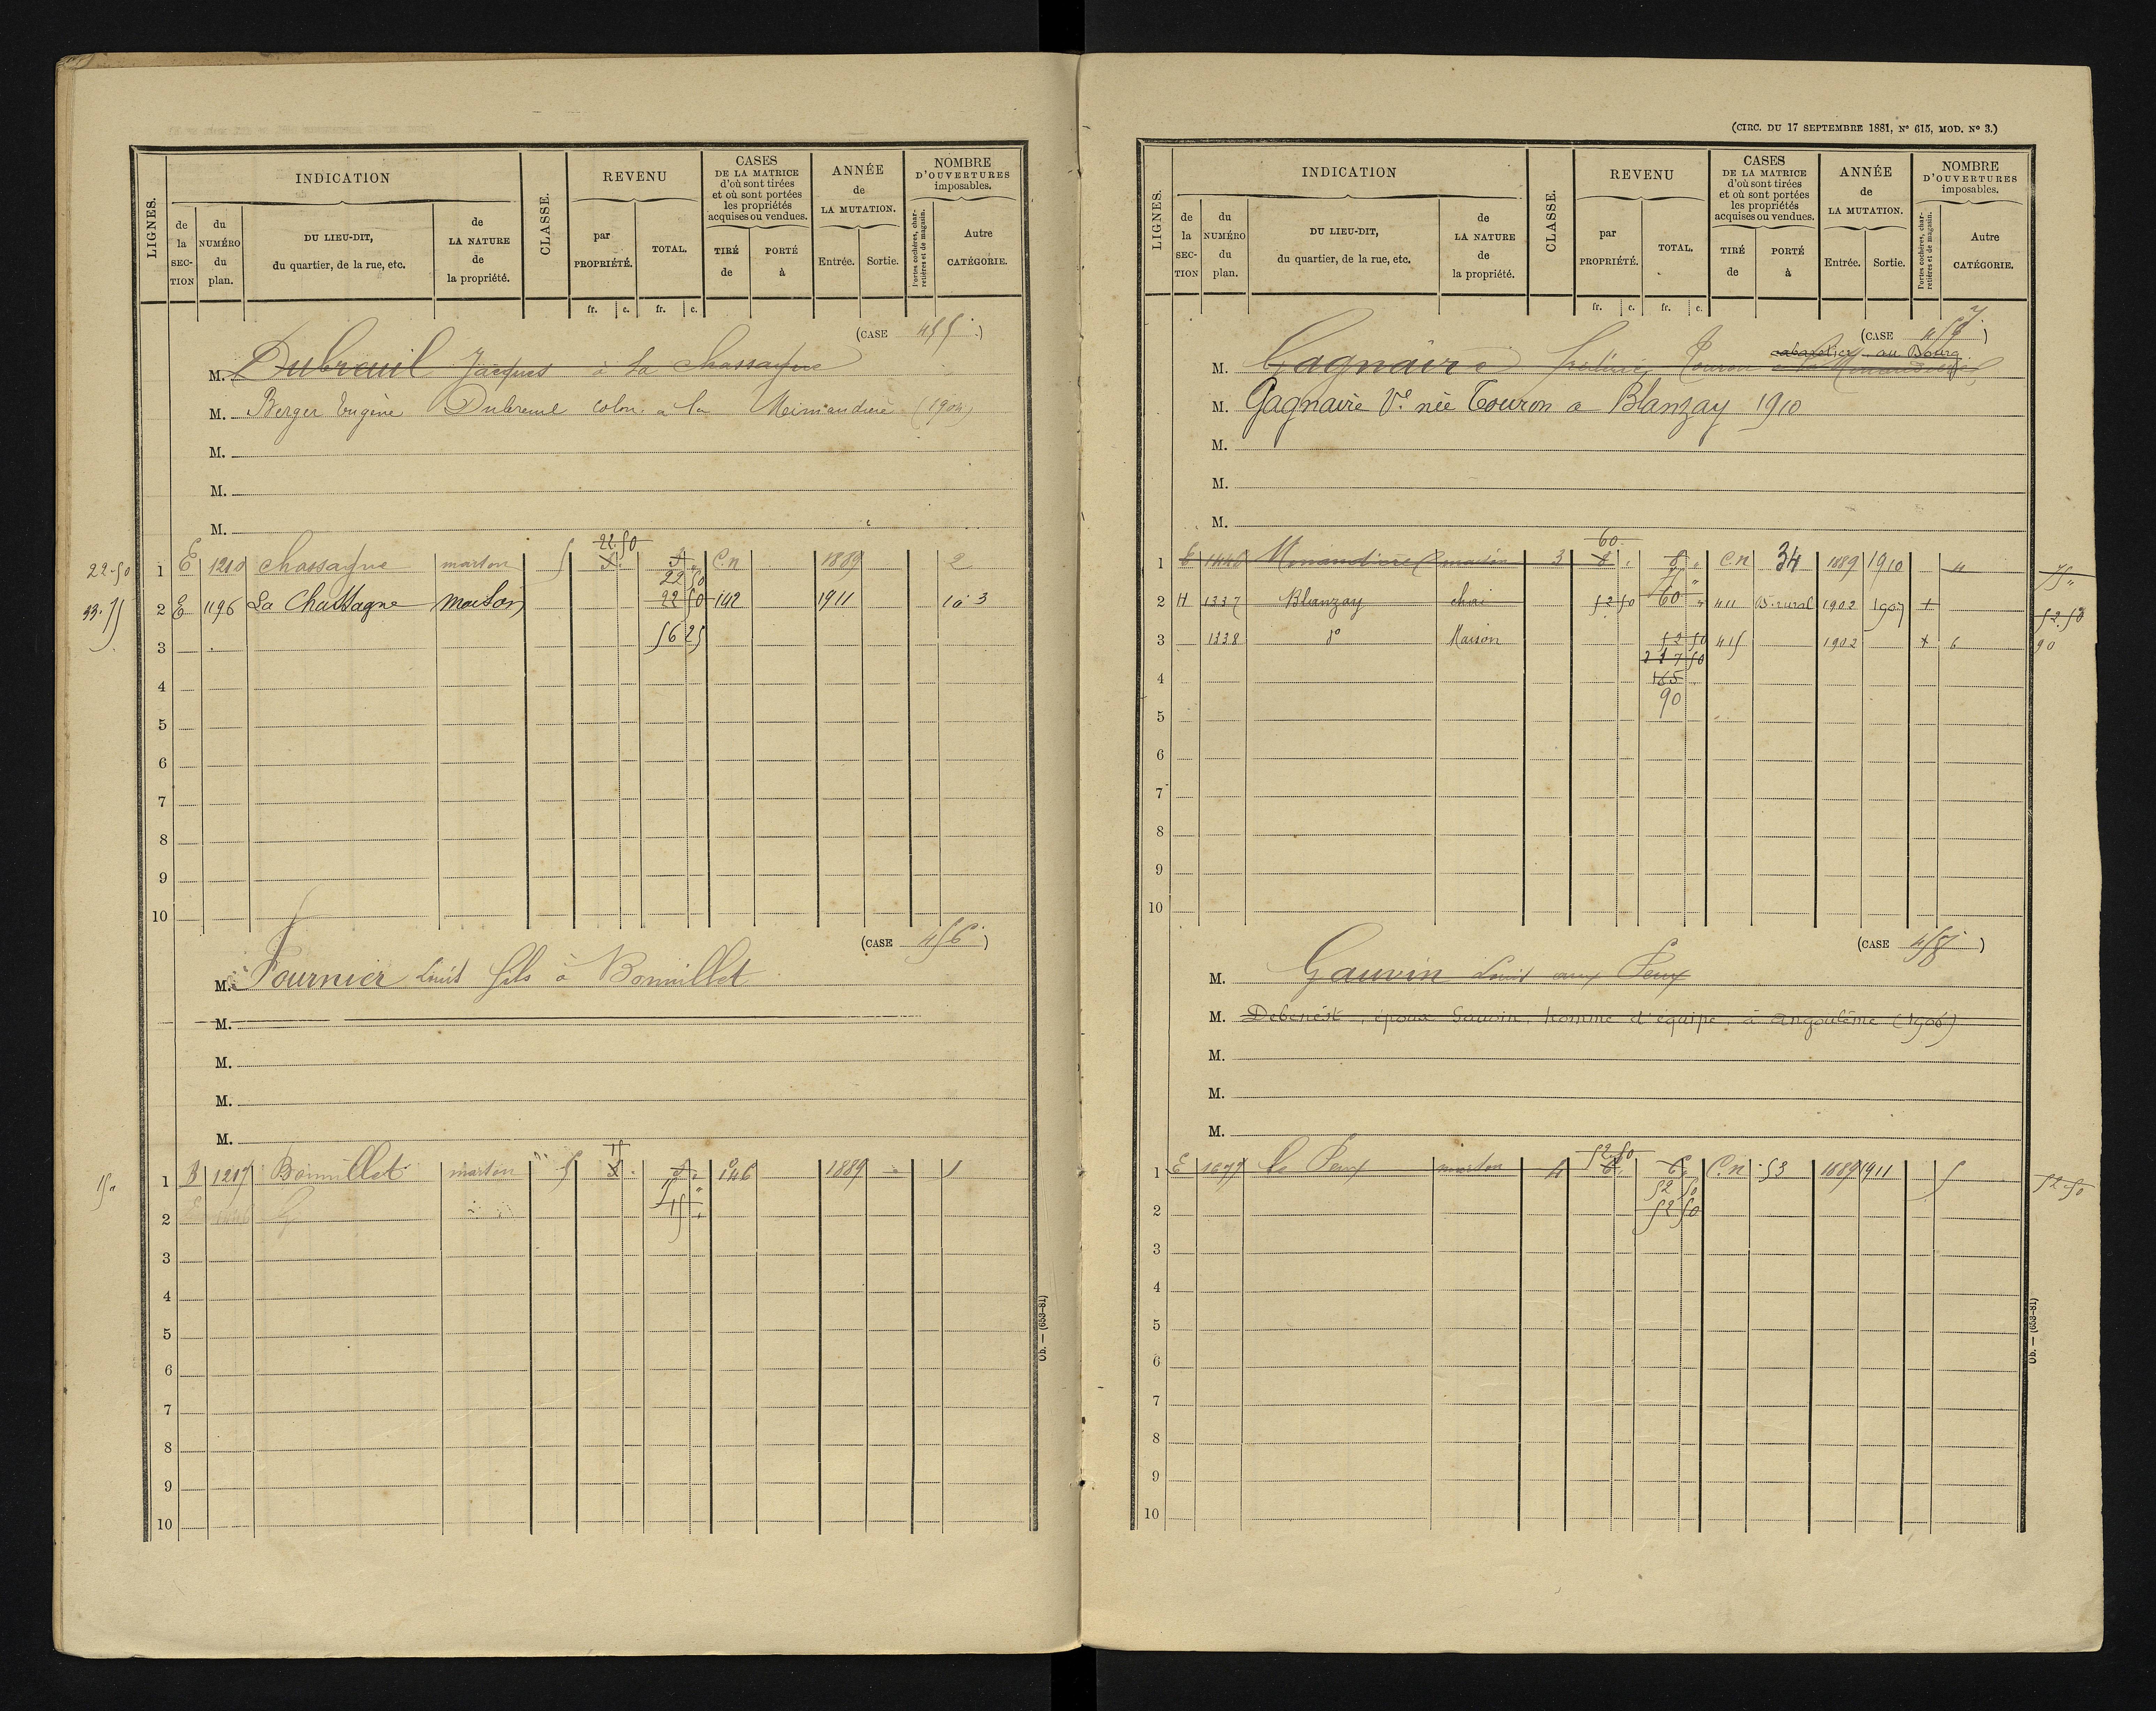 LIGNES.
INDICATION
de la SECTION
du NUMÉRO du plan.
DU LIEU-DIT, du quartier, de la rue, etc.
de LA NATURE de la propriété.
CLASSE.
REVENU
par PROPRIÉTÉ.
TOTAL.
CASES DE LA MATRICE d'où sont tirées et où sont portées les propriétés acquises ou vendues.
TIRÉ de
PORTÉ à
ANNÉE de LA MUTATION.
Entrée.
Sortie.
NOMBRE D'OUVERTURES imposables.
Portes cochères, charretières et de magasin.
Autre CATÉGORIE.
fr. c. fr. c.
(CASE 455.)
M. Dubreuil Jacques à la chassagne
M. Berger Eugène Dubreuil colon. a la (1904)
M.
M.
M.
22.50
22-50 1 E 1210 chassagne maison 5 5. 5. C.n 1889 2
22 50
33.75 2 E 1196 La Chassagne maison 22 50 142 1911 3
56 25
3
4
5
6
7
8
9
10
(CASE 456.)
M. Fournier Louis fils à Bonnillet
M.
M.
M.
M.
15
15 " 1 B 1217 Bonnillet maison 5 5. 5. 146 1889 1
15 "
2 15 "
3
4
5
6
7
8
9
10
Ob. — (653-81)
(CIRC. DU 17 SEPTEMBRE 1881, N° 615, MOD. N° 3.)
LIGNES.
INDICATION
de la SECTION
du NUMÉRO du plan.
DU LIEU-DIT, du quartier, de la rue, etc.
de LA NATURE de la propriété.
CLASSE.
REVENU
par PROPRIÉTÉ.
TOTAL.
CASES DE LA MATRICE d'où sont tirées et où sont portées les propriétés acquises ou vendues.
TIRÉ de
PORTÉ à
ANNÉE de LA MUTATION.
Entrée.
Sortie.
NOMBRE D'OUVERTURES imposables.
Portes cochères, charretières et de magasin.
Autre CATÉGORIE.
fr. c. fr. c.
(CASE 457)
cabaretier au Bourg
M. Gagnaire Frédéric Touron
M. Gagnaire Ve née Touron a Blanzay 1910
M.
M.
M.
60.
1 E 1446 maison 3 8 . 8 " C.n 34 1889 1910 " 75 "
75 "
2 H 1337 Blanzay chai 52 50 60 " 411 B. rural 1902 1907 + 52.50
3 1338 do Maison 52 50 415 1902 + 6 90
217 50
4 165
90
5
6
7
8
9
10
(CASE 458)
M. Gauvin Louis aux Peux
M. Debenest, époux Gauvin, homme d'équipe à Angoulême (1906)
M.
M.
M.
52.50
1 E 1677 le Peux maison 4 6. 6. C.n 53 1889 1911 5 52-50
52 50
2 52 50
3
4
5
6
7
8
9
10
Ob. — (653-81)